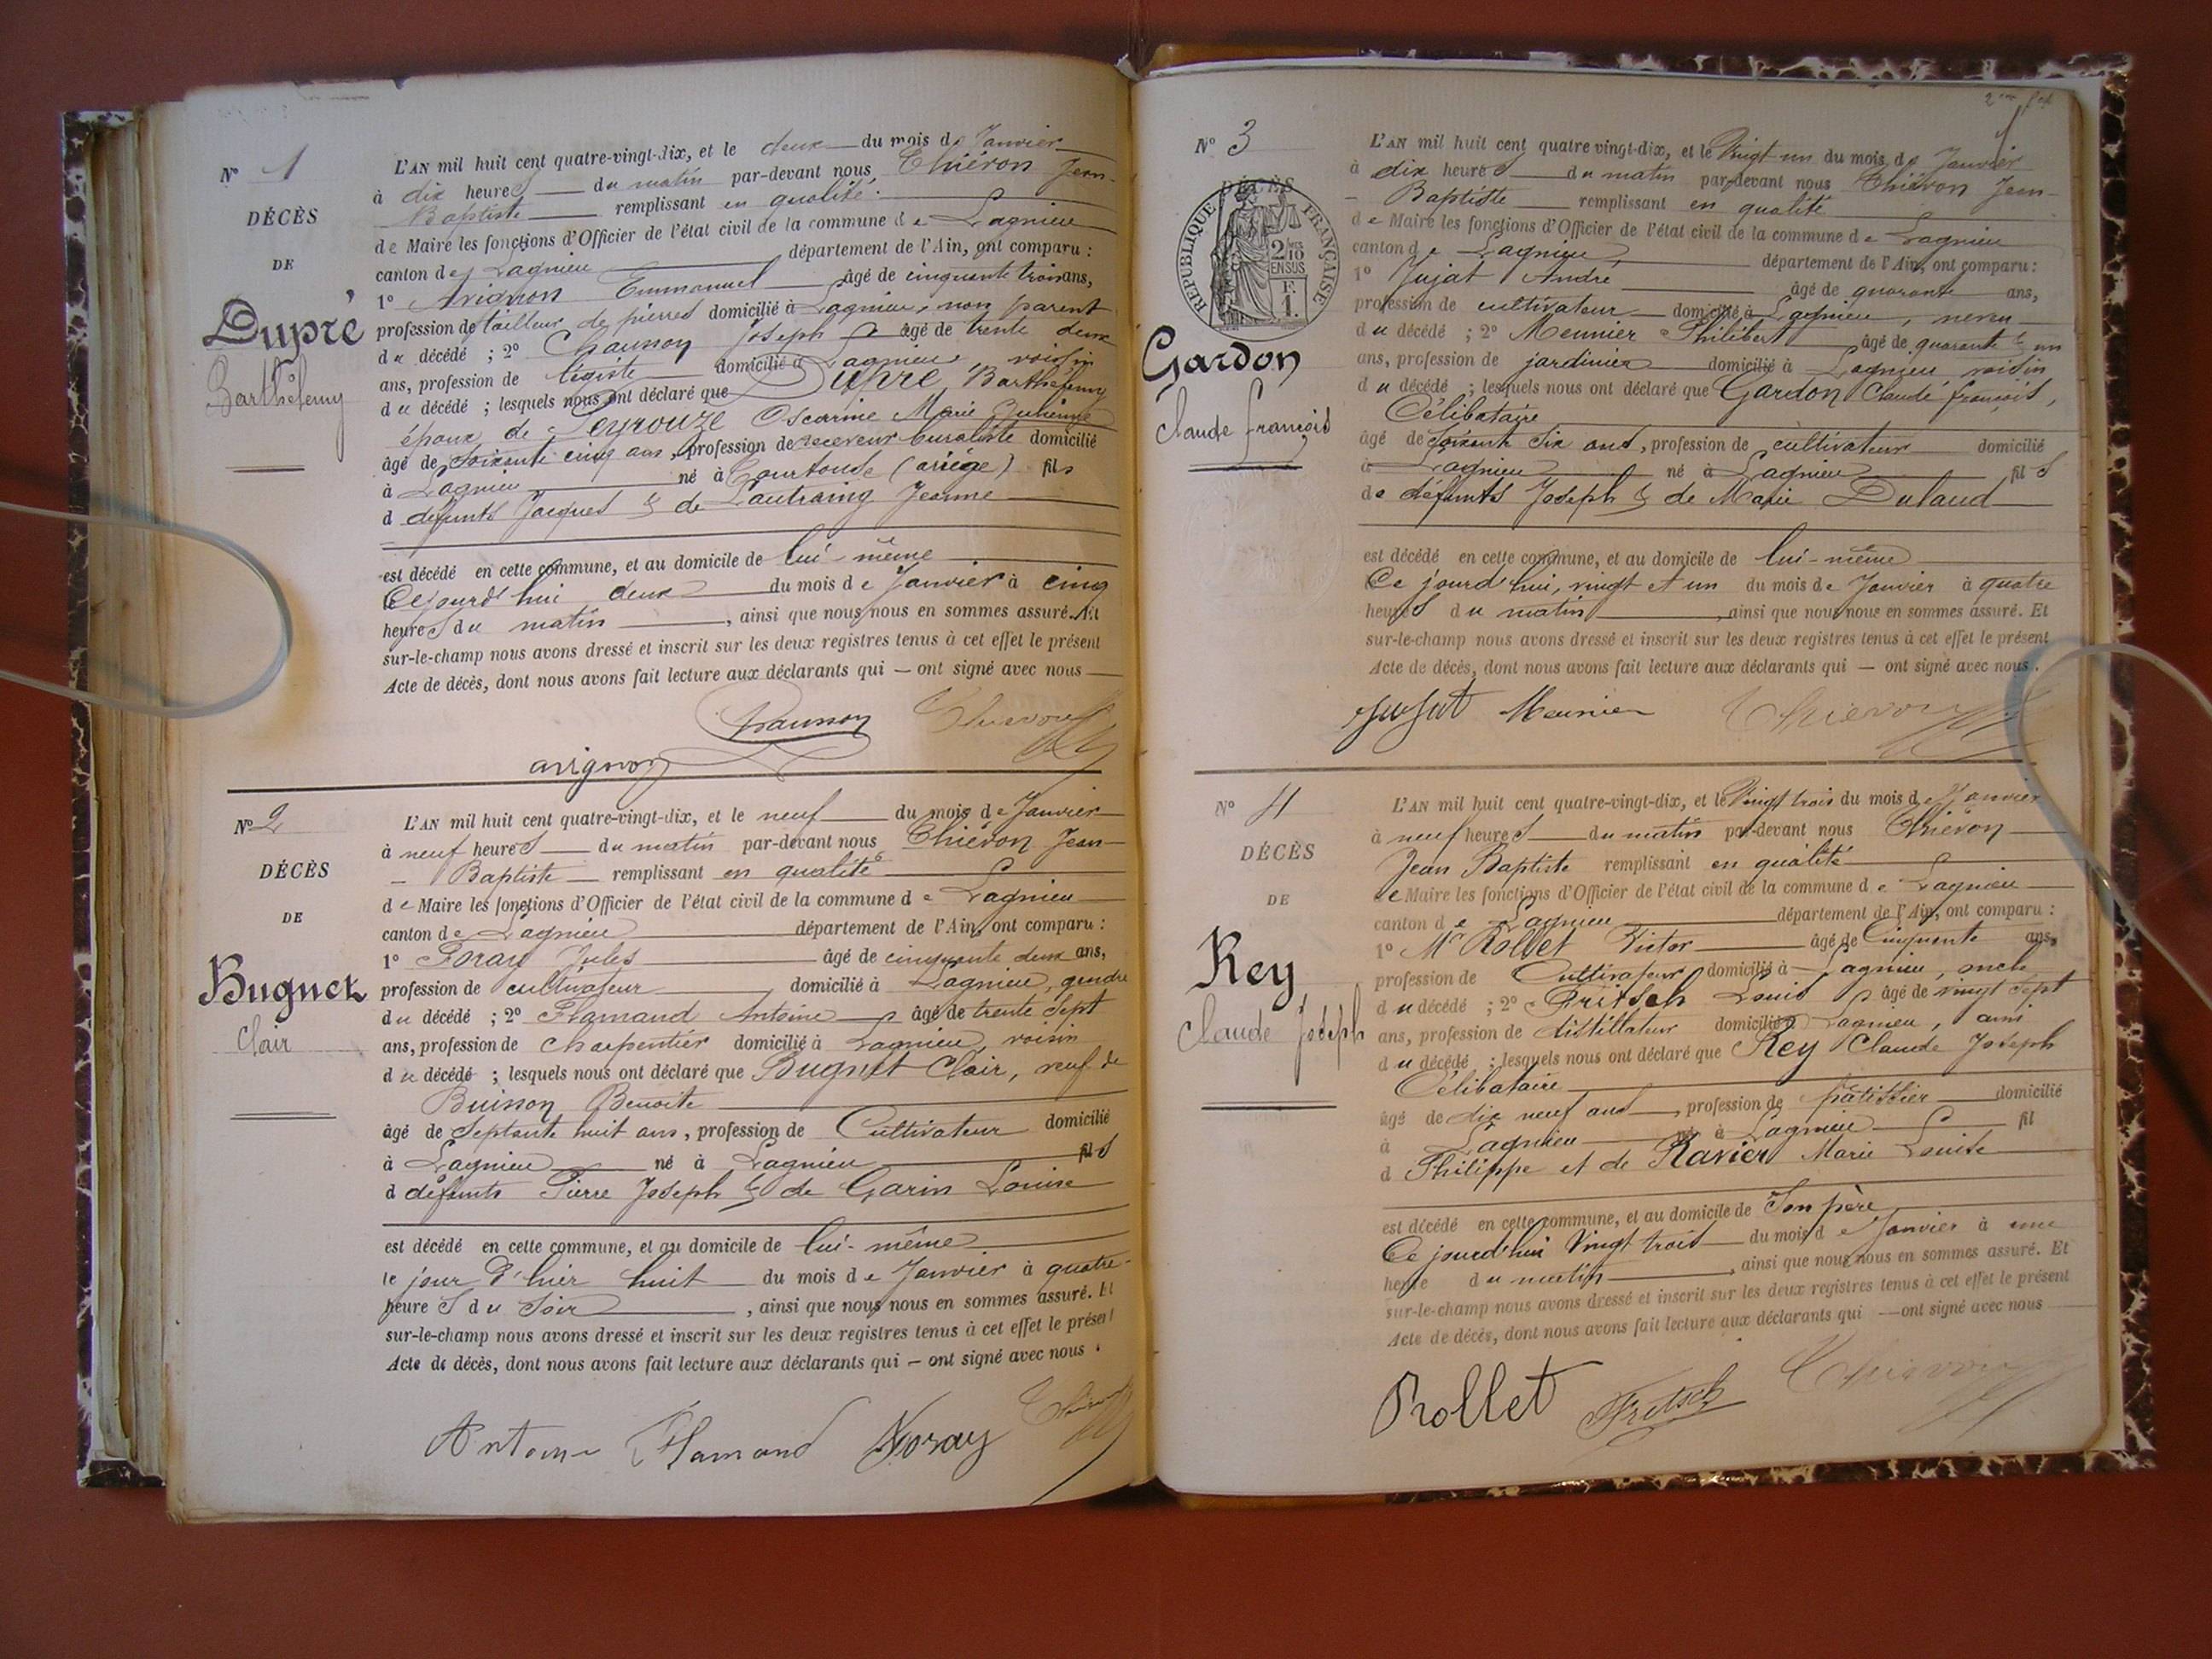 N° 1
DÉCÈS
DE
Dupré
Barthélemy
L'AN mil huit cent quatre-vingt-dix, et le deux du mois de Janvier
à dix heures du matin par-devant nous Thiévon Jean-
Baptiste remplissant en qualité
de Maire les fonctions d'Officier de l'état civil de la commune de Lagnieu
canton de Lagnieu département de l'Ain, ont comparu :
1° Avignon Emmanuel âgé de cinquante trois ans,
profession de tailleur de pierres domicilié à Lagnieu, non parent
du décédé ; 2° Chausson Joseph âgé de trente deux
ans, profession de légiste domicilié à Lagnieu, voisin
du décédé ; lesquels nous ont déclaré que Dupré Barthélemy
époux de Peyrouze Oscarine Marie Julienne
âgé de soixante cinq ans, profession de receveur buraliste domicilié
à Lagnieu né à Courtoude (ariége) fils
d défunts Jacques & de Lautraing Jeanne
est décédé en cette commune, et au domicile de lui-même
Cejourd'hui deux du mois de Janvier à cinq
heures du matin , ainsi que nous nous en sommes assuré. Et
sur-le-champ nous avons dressé et inscrit sur les deux registres tenus à cet effet le présent
Acte de décès, dont nous avons fait lecture aux déclarants qui — ont signé avec nous
Chausson Thiévon
avignon
N° 2
DÉCÈS
DE
Buguet
Clair
L'AN mil huit cent quatre-vingt-dix, et le neuf du mois de Janvier
à neuf heures du matin par-devant nous Thiévon Jean-
- Baptiste remplissant en qualité
de Maire les fonctions d'Officier de l'état civil de la commune de Lagnieu
canton de Lagnieu département de l'Ain, ont comparu :
1° Foray Jules âgé de cinquante deux ans,
profession de cultivateur domicilié à Lagnieu, gendre
du décédé ; 2° Flamand Antoine âgé de trente Sept
ans, profession de charpentier domicilié à Lagnieu, voisin
du décédé ; lesquels nous ont déclaré que Buguet Clair, veuf de
Buisson Benoite
âgé de Septante huit ans, profession de Cultivateur domicilié
à Lagnieu né à Lagnieu fils
d défunts Pierre Joseph & de Garin Louise
est décédé en cette commune, et au domicile de lui-même
le jour d'hier huit du mois de Janvier à quatre
heures du Soir , ainsi que nous nous en sommes assuré. Et
sur-le-champ nous avons dressé et inscrit sur les deux registres tenus à cet effet le présent
Acte de décès, dont nous avons fait lecture aux déclarants qui — ont signé avec nous.
Antoine Flamand Foray Thiévon
N° 3
DÉCÈS
RÉPUBLIQUE FRANÇAISE
2/10 EN SUS
F. 1.
Gardon
Claude françois
L'AN mil huit cent quatre vingt-dix, et le Vingt un du mois de Janvier
à dix heures du matin par-devant nous Thiévon Jean-
- Baptiste remplissant en qualité
de Maire les fonctions d'Officier de l'état civil de la commune de Lagnieu
canton de Lagnieu département de l'Ain, ont comparu :
1° Jujat André âgé de quarante ans,
profession de cultivateur domicilié à Lagnieu, neveu
du décédé ; 2° Meunier Philibert âgé de quarante & un
ans, profession de jardinier domicilié à Lagnieu voisin
du décédé ; lesquels nous ont déclaré que Gardon Claude françois,
Célibataire
âgé de soixante six ans, profession de cultivateur domicilié
à Lagnieu né à Lagnieu fils
de défunts Joseph & de Marie Dulaud
est décédé en cette commune, et au domicile de lui-même
Ce jourd'hui, vingt et un du mois de Janvier à quatre
heures du matin , ainsi que nous nous en sommes assuré. Et
sur-le-champ nous avons dressé et inscrit sur les deux registres tenus à cet effet le présent
Acte de décès, dont nous avons fait lecture aux déclarants qui — ont signé avec nous.
Jujat Meunier Thiévon
N° 4
DÉCÈS
DE
Rey
Claude Joseph
L'AN mil huit cent quatre-vingt-dix, et le Vingt trois du mois de Janvier
à neuf heures du matin par-devant nous Thiévon
Jean Baptiste remplissant en qualité
de Maire les fonctions d'Officier de l'état civil de la commune de Lagnieu
canton de Lagnieu département de l'Ain, ont comparu :
1° Mr Rollet Victor âgé de Cinquante ans,
profession de Cultivateur domicilié à Lagnieu, oncle
du décédé ; 2° Fritsch Louis âgé de vingt sept
ans, profession de distillateur domicilié à Lagnieu, ami
du décédé ; lesquels nous ont déclaré que Rey Claude Joseph
Célibataire
âgé de dix neuf ans, profession de pâtissier domicilié
à Lagnieu né à Lagnieu fil
d Philippe et de Ravier Marie Louise
est décédé en cette commune, et au domicile de Son père
Ce jourd'hui Vingt trois du mois de Janvier à une
heure du matin , ainsi que nous nous en sommes assuré. Et
sur-le-champ nous avons dressé et inscrit sur les deux registres tenus à cet effet le présent
Acte de décès, dont nous avons fait lecture aux déclarants qui — ont signé avec nous
Rollet Fritsch Thiévon